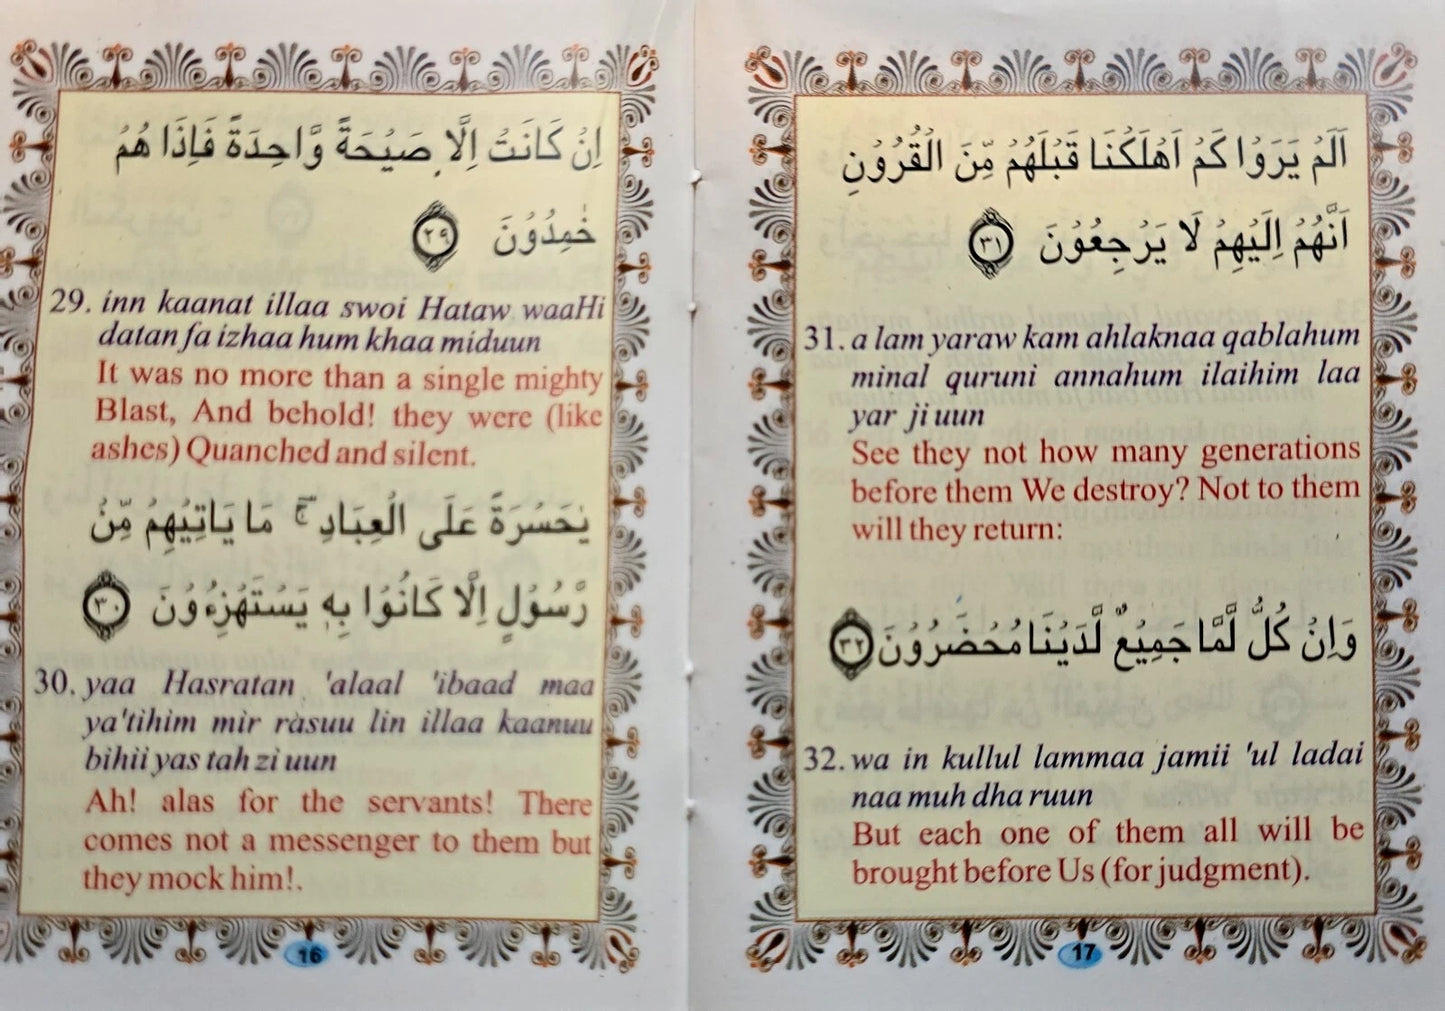 اِنْ كَانَتْ اِلَّا صَيْحَةً وَّاحِدَةً فَاِذَا هُمْ
خٰمِدُوْنَ ٢٩
29. inn kaanat illaa swoi Hataw waaHi
datan fa izhaa hum khaa miduun
It was no more than a single mighty
Blast, And behold! they were (like
ashes) Quanched and silent.
يٰحَسْرَةً عَلَى الْعِبَادِ ۚ مَا يَاْتِيْهِمْ مِّنْ
رَّسُوْلٍ اِلَّا كَانُوْا بِهٖ يَسْتَهْزِءُوْنَ ٣٠
30. yaa Hasratan 'alaal 'ibaad maa
ya'tihim mir rasuu lin illaa kaanuu
bihii yas tah zi uun
Ah! alas for the servants! There
comes not a messenger to them but
they mock him!.
16
اَلَمْ يَرَوْا كَمْ اَهْلَكْنَا قَبْلَهُمْ مِّنَ الْقُرُوْنِ
اَنَّهُمْ اِلَيْهِمْ لَا يَرْجِعُوْنَ ٣١
31. a lam yaraw kam ahlaknaa qablahum
minal quruni annahum ilaihim laa
yar ji uun
See they not how many generations
before them We destroy? Not to them
will they return:
وَاِنْ كُلٌّ لَّمَّا جَمِيْعٌ لَّدَيْنَا مُحْضَرُوْنَ ٣٢
32. wa in kullul lammaa jamii 'ul ladai
naa muh dha ruun
But each one of them all will be
brought before Us (for judgment).
17